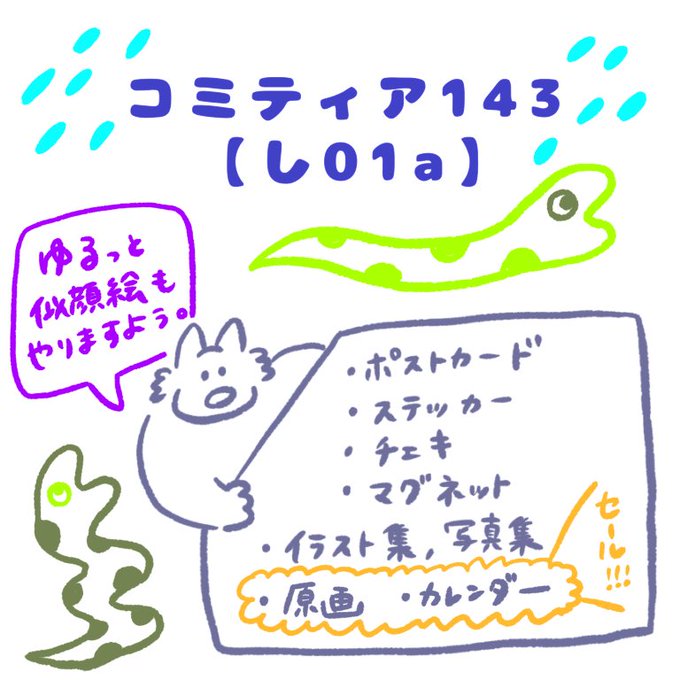 コミティア143
【し01a】
ゆるっと
似顔絵も
やりますよう。
・ポストカード
・ステッカー
・チェキ
・マグネット
・イラスト集,写真集
・原画 ・カレンダー
セール!!!